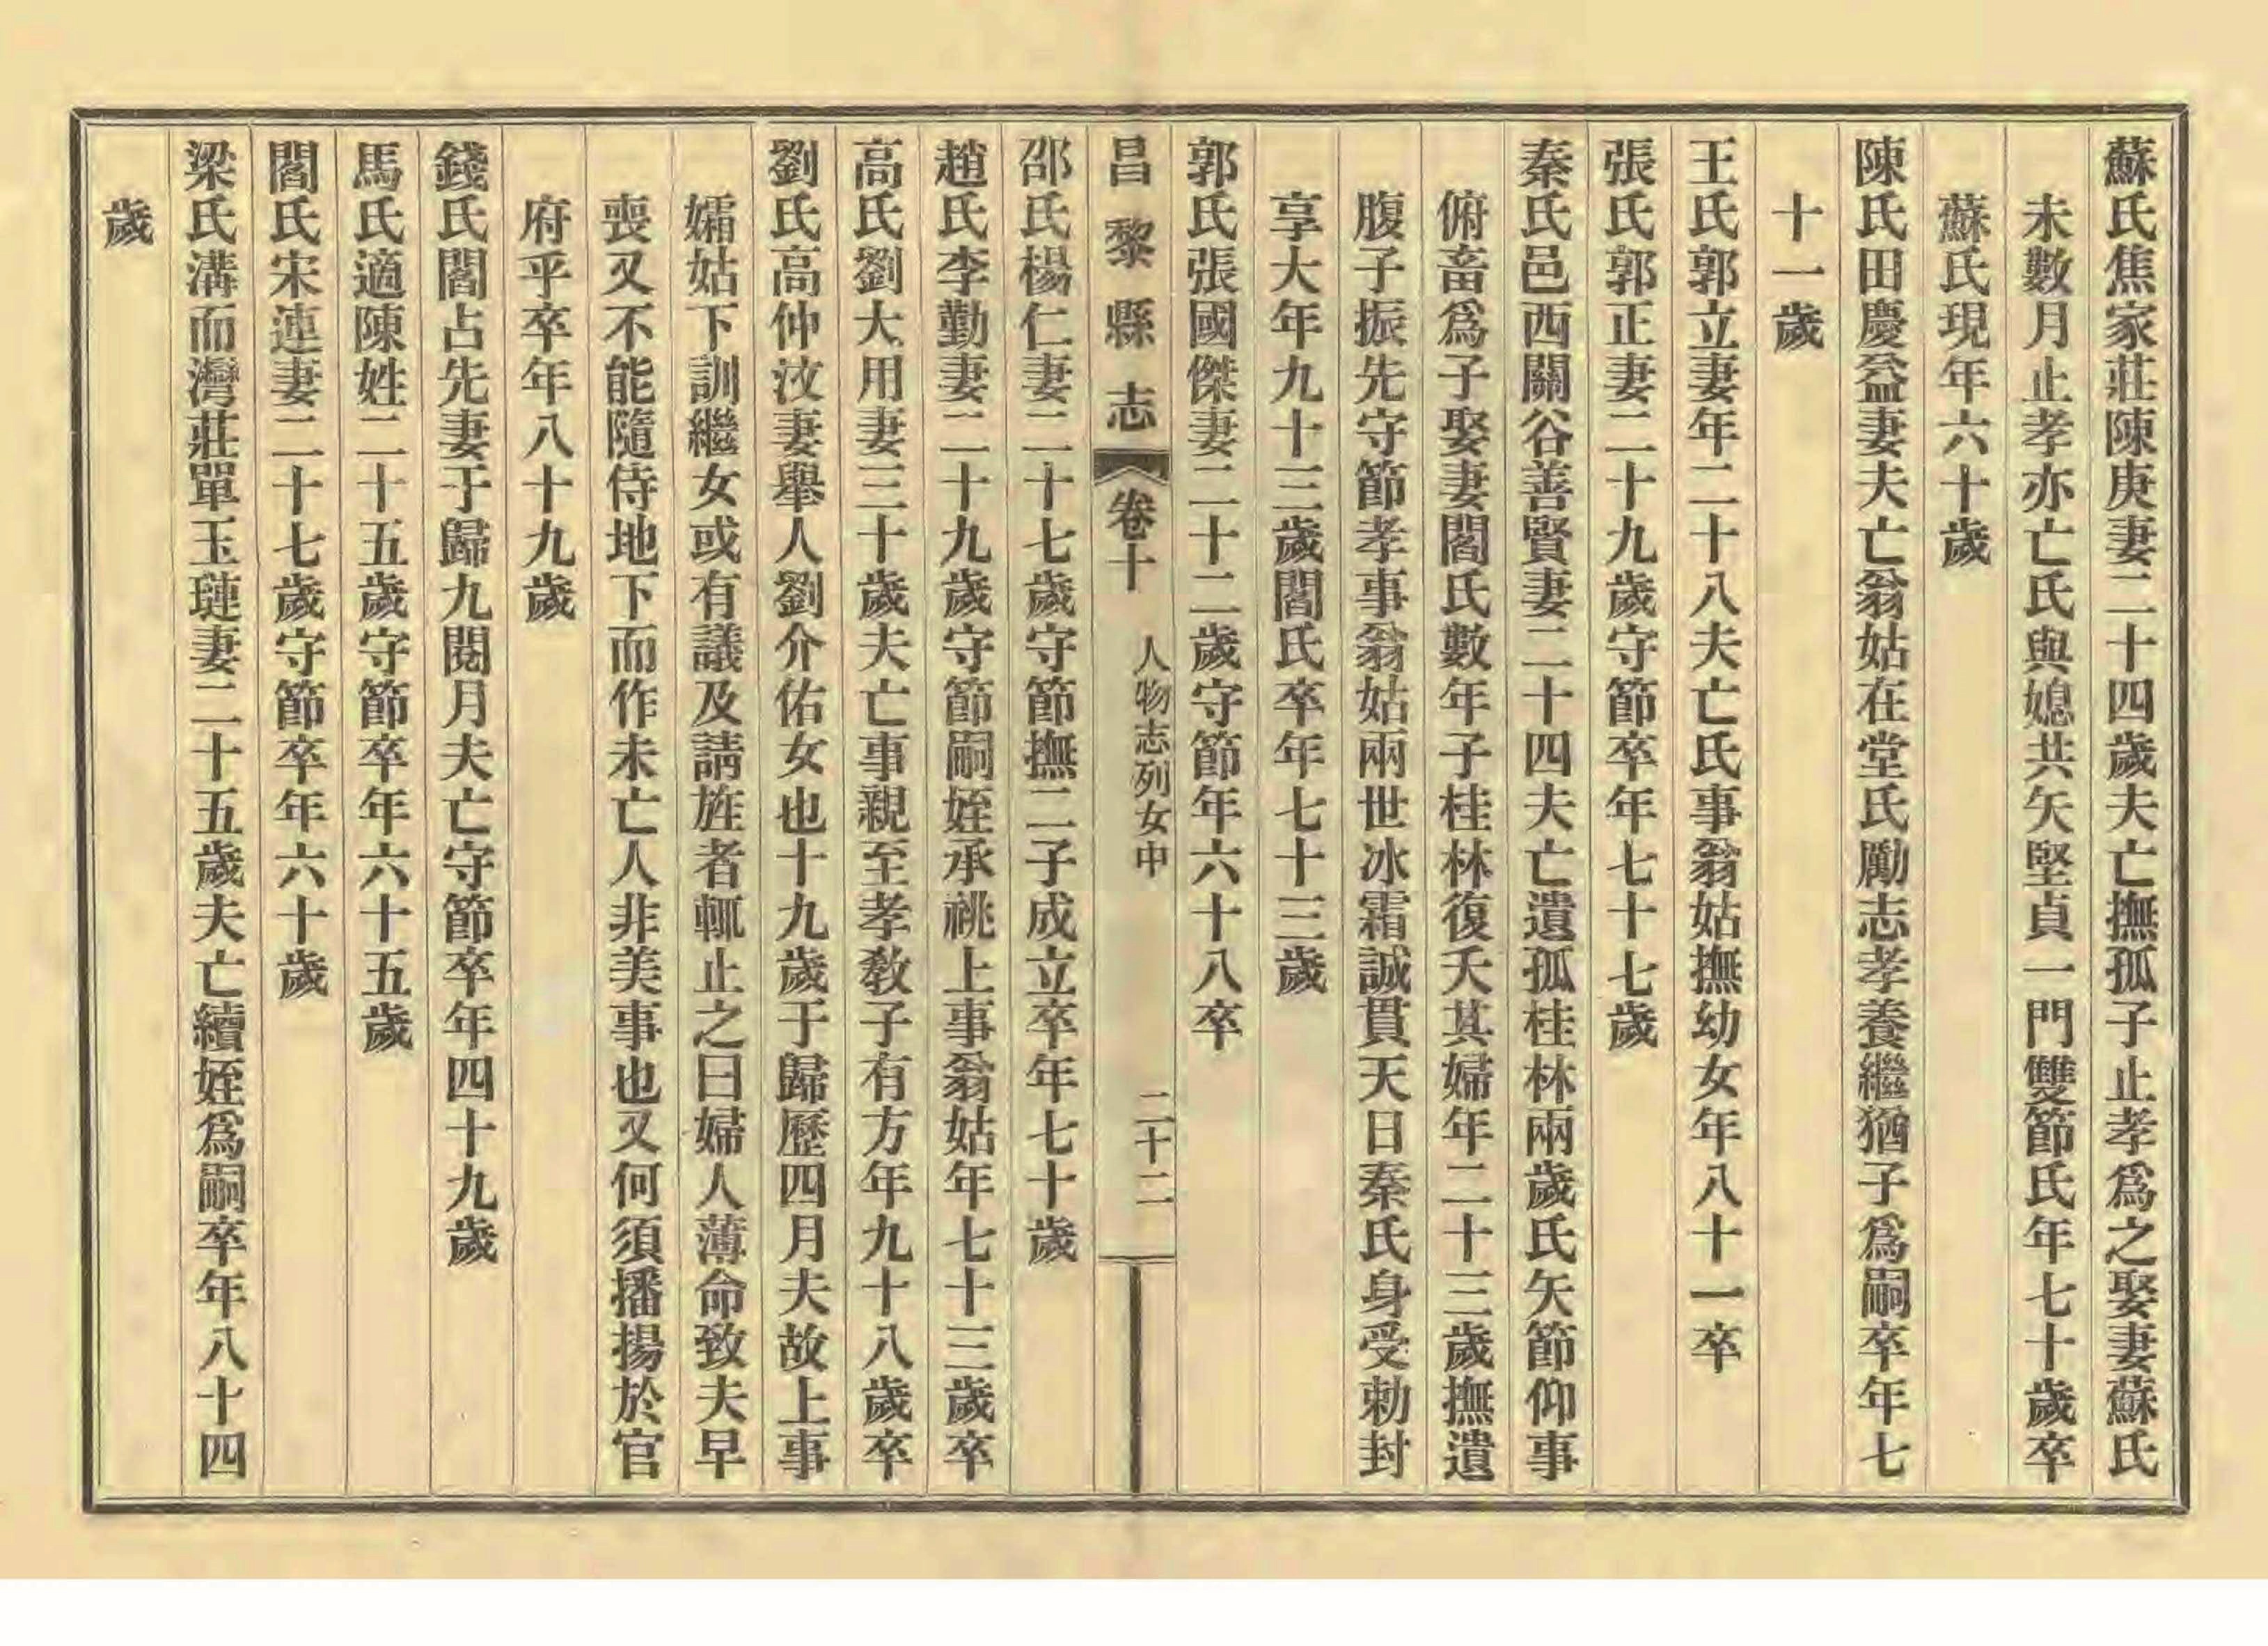 蘇氏焦家莊陳庚妻二十四歲夫亡撫孤子止孝爲之娶妻蘇氏
未數月止孝亦亡氏與媳共矢堅貞一門雙節氏年七十歲卒
蘇氏現年六十歲
陳氏田慶益妻夫亡翁姑在堂氏勵志孝養繼猶子爲嗣卒年七
十一歲
王氏郭立妻年二十八夫亡氏事翁姑撫幼女年八十一卒
張氏郭正妻二十九歲守節卒年七十七歲
秦氏邑西關谷善賢妻二十四夫亡遺孤桂林兩歲氏矢節仰事
俯畜爲子娶妻閻氏數年子桂林復夭其婦年二十三歲撫遺
腹子振先守節孝事翁姑兩世冰霜誠貫天日秦氏身受勅封
享大年九十三歲閻氏卒年七十三歲
郭氏張國傑妻二十二歲守節年六十八卒
昌黎縣志 卷十 人物志列女中 二十二
邵氏楊仁妻二十七歲守節撫二子成立卒年七十歲
趙氏李勤妻二十九歲守節嗣姪承祧上事翁姑年七十三歲卒
高氏劉大用妻三十歲夫亡事親至孝教子有方年九十八歲卒
劉氏高仲汶妻舉人劉介佑女也十九歲于歸歷四月夫故上事
孀姑下訓繼女或有議及請旌者輒止之曰婦人薄命致夫早
喪又不能隨侍地下而作未亡人非美事也又何須播揚於官
府乎卒年八十九歲
錢氏閻占先妻于歸九閱月夫亡守節卒年四十九歲
馬氏適陳姓二十五歲守節卒年六十五歲
閻氏宋連妻二十七歲守節卒年六十歲
梁氏溝而灣莊單玉璉妻二十五歲夫亡續姪爲嗣卒年八十四
歲